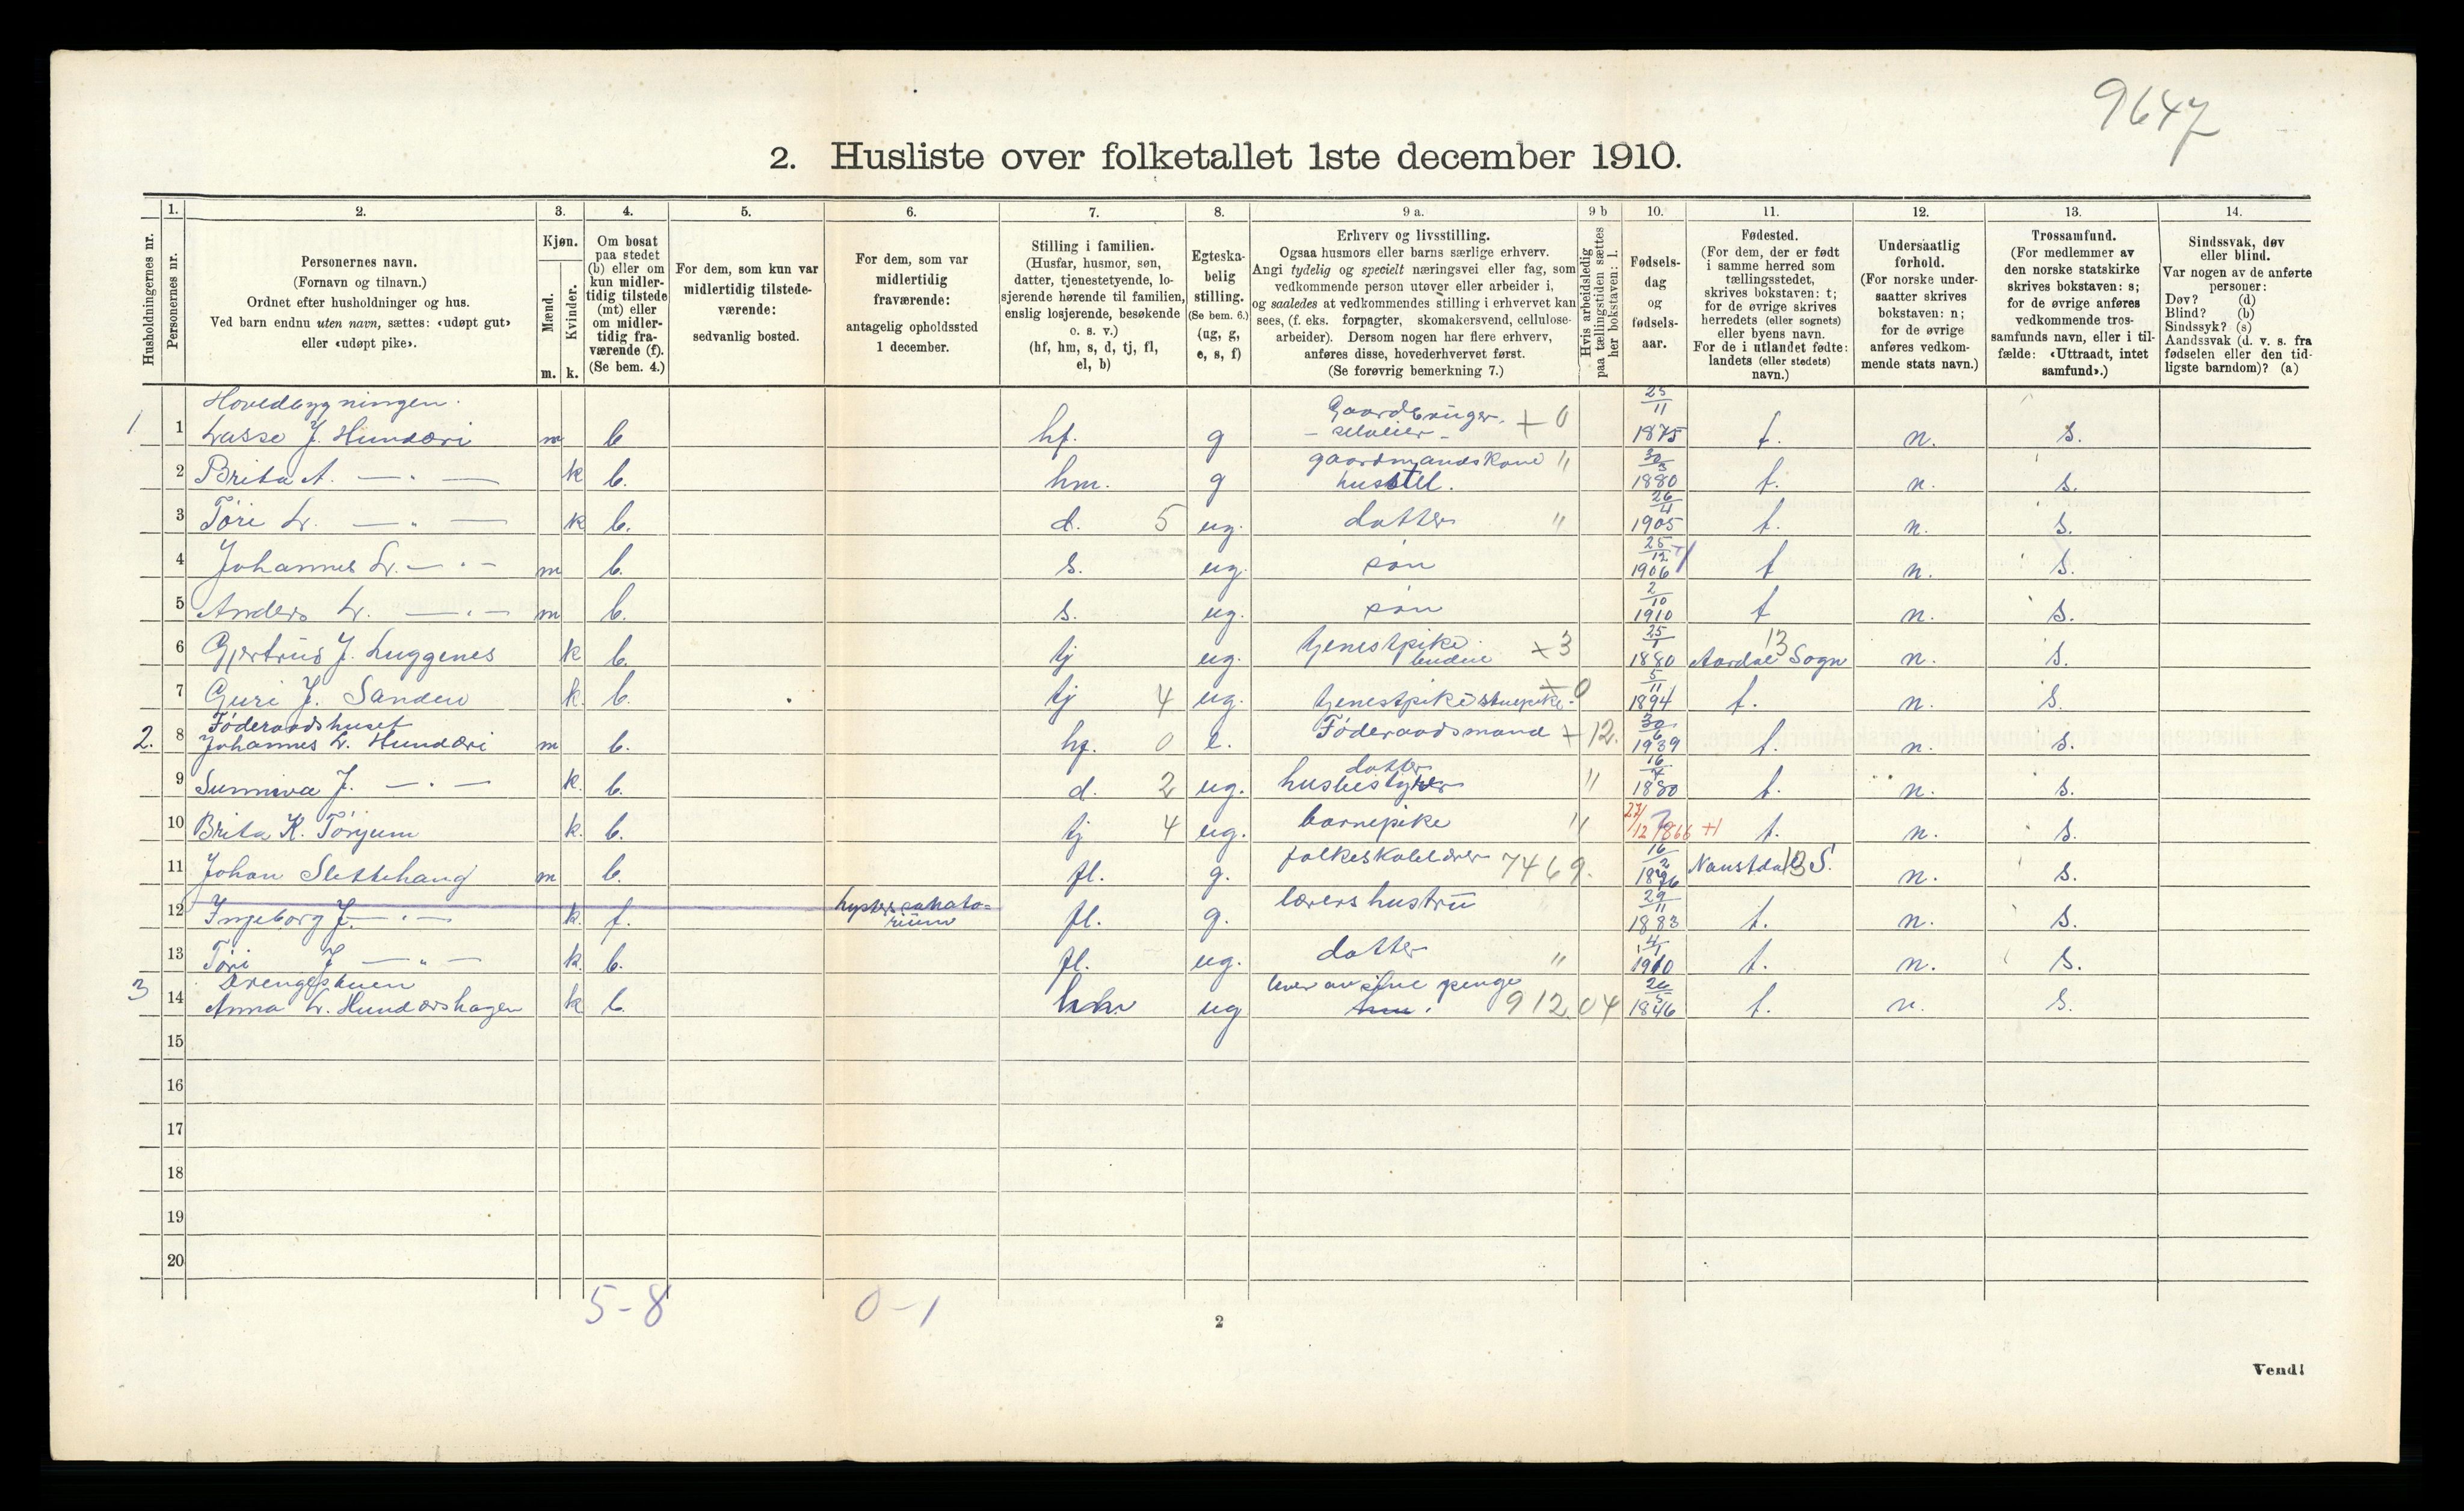 9647
2. Husliste over folketallet 1ste december 1910.
Husholdningernes nr.
1. Personernes nr.
2. Personernes navn.
(Fornavn og tilnavn.)
Ordnet efter husholdninger og hus.
Ved barn endnu uten navn, sættes: «udøpt gut»
eller «udøpt pike».
3. Kjøn.
Mænd. Kvinder.
m. k.
4. Om bosat
paa stedet
(b) eller om
kun midler-
tidig tilstede
(mt) eller
om midler-
tidig fra-
værende (f).
(Se bem. 4.)
5. For dem, som kun var
midlertidig tilstede-
værende:
sedvanlig bosted.
6. For dem, som var
midlertidig
fraværende:
antagelig opholdssted
1 december.
7. Stilling i familien.
(Husfar, husmor, søn,
datter, tjenestetyende, lo-
sjerende hørende til familien,
enslig losjerende, besøkende
o. s. v.)
(hf, hm, s, d, tj, fl,
el, b)
8. Egteska-
belig
stilling.
(Se bem. 6.)
(ug, g,
e, s, f)
9 a. Erhverv og livsstilling.
Ogsaa husmors eller barns særlige erhverv.
Angi tydelig og specielt næringsvei eller fag, som
vedkommende person utøver eller arbeider i,
og saaledes at vedkommendes stilling i erhvervet kan
sees, (f. eks. forpagter, skomakersvend, cellulose-
arbeider). Dersom nogen har flere erhverv,
anføres disse, hovederhvervet først.
(Se forøvrig bemerkning 7.)
9 b Hvis arbeidsledig
paa tællingstiden sættes
her bokstaven: l.
10. Fødsels-
dag
og
fødsels-
aar.
11. Fødested.
(For dem, der er født
i samme herred som
tællingsstedet,
skrives bokstaven: t;
for de øvrige skrives
herredets (eller sognets)
eller byens navn.
For de i utlandet fødte:
landets (eller stedets)
navn.)
12. Undersaatlig
forhold.
(For norske under-
saatter skrives
bokstaven: n;
for de øvrige
anføres vedkom-
mende stats navn.)
13. Trossamfund.
(For medlemmer av
den norske statskirke
skrives bokstaven: s;
for de øvrige anføres
vedkommende tros-
samfunds navn, eller i til-
fælde: «Uttraadt, intet
samfund».)
14. Sindssvak, døv
eller blind.
Var nogen av de anførte
personer:
Døv? (d)
Blind? (b)
Sindssyk? (s)
Aandssvak (d. v. s. fra
fødselen eller den tid-
ligste barndom)? (a)
Hovedbygningen.
1 1 Lasse J. Hundæri m b. hf. g Gaardbruger - selveier - + 0 25/11 1875 t. n. s.
2 Brita A. — " — k b. hm. g gaardmandskone husstel. " 30/3 1880 t. n. s.
3 Tøri L. — " — k b. d. 5 ug. datter " 26/4 1905 t. n. s.
4 Johannes L. — " — m b. s. ug. søn 25/12 1906 t n. s.
5 Anders L. — " — m b. s. ug. søn 2/10 1910 t n. s.
6 Gjertrud J. Luggenes k b. tj ug. tjenestpike budeie x3 25/1 1880 Aardal Sogn 13 n. s.
7 Guri J. Sanden k. b. tj 4 ug. tjenestpike stuepike. +0 5/11 1894 t. n. s.
Føderaadshuset
2. 8 Johannes L. Hundæri m b. hf. 0 e. Føderaadsmand + 12. 30/6 1939 t. n. s.
9 Sunniva J. — " — k. b. d. 2 ug. datter husbestyrer " 16/4 1880 t. n. s.
10 Brita K. Tønjum k. b. tj 4 ug. barnepike " 27/12 1866 +1 t. n. s.
11 Johan Slettehaug m b. fl. g. folkeskolelærer 7469. 16/2 1876 Naustdal S. 13 n. s.
12 Ingeborg J. — " — k. f. Lyster sanato- rium fl. g. lærers hustru 29/11 1883 t. n. s.
13 Tøri J — " — k. b. fl. ug. datter " 4/1 1910 t. n. s.
Drengestuen
3 14 Anna L. Hundærshagen k b. hm ug lever av sine penge hm. 912.04 26/5 1846 t. n. s.
15
16
17
18
19
20
5-8 0-1
2
Vend!